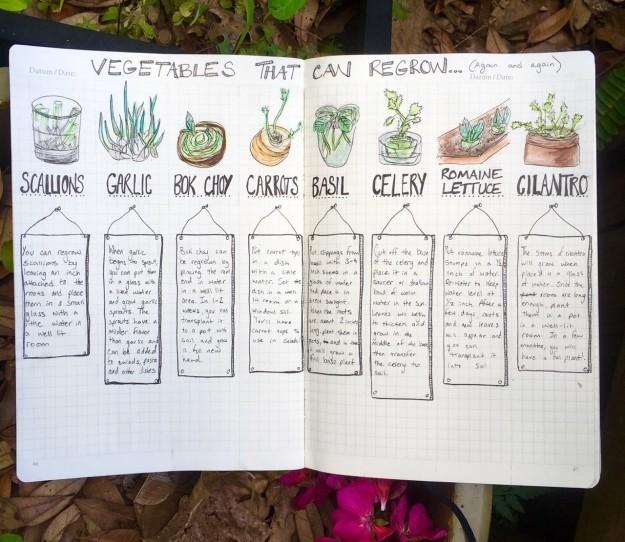 Datum / Date:
VEGETABLES THAT CAN REGROW... (Again and again)
Datum / Date:
SCALLIONS
GARLIC
BOK CHOY
CARROTS
BASIL
CELERY
ROMAINE
LETTUCE
CILANTRO
You can regrow
scallions by
leaving an inch
attached to the
roots and place
them in a small
glass with a
little water in
a well lit
room
When garlic
begins to sprout,
you can put them
in a glass with
a little water
and grow garlic
sprouts. The
sprouts have a
milder flavor
than garlic and
can be added
to salads, pasta
and other dishes
Bok choy can
be regrown by
placing the root
end in water
in a well lit
area. In 1-2
weeks, you can
transplant it
to a pot with
soil and grow
a full new
head.
Put carrot tops
in a dish
with a little
water. Set the
dish in a well
lit room or a
window sill.
You'll have
carrot tops to
use in salads.
Put clippings from
basil with 3-4
inch stems in a
glass of water
and place it in
direct sunlight.
When the roots
are about 2 inches
long, plant them in
pots, and in time
will grow a
full basil plant.
Cut off the base
of the celery and
place it in a
saucer or shallow
bowl of warm
water in the sun.
Leaves will begin
to thicken and
grow in the
middle of the base,
then transfer
the celery to
soil.
Put romaine lettuce
stumps in a 1/2
inch of water.
Re-water to keep
water level at
1/2 inch. After a
few days, roots
and new leaves
will appear and
you can
transplant it
into soil
The stems of cilantro
will grow when
placed in a glass
of water. Once the
roots are long
enough, plant
them in a pot
in a well-lit
room. In a few
months, you will
have a full plant.